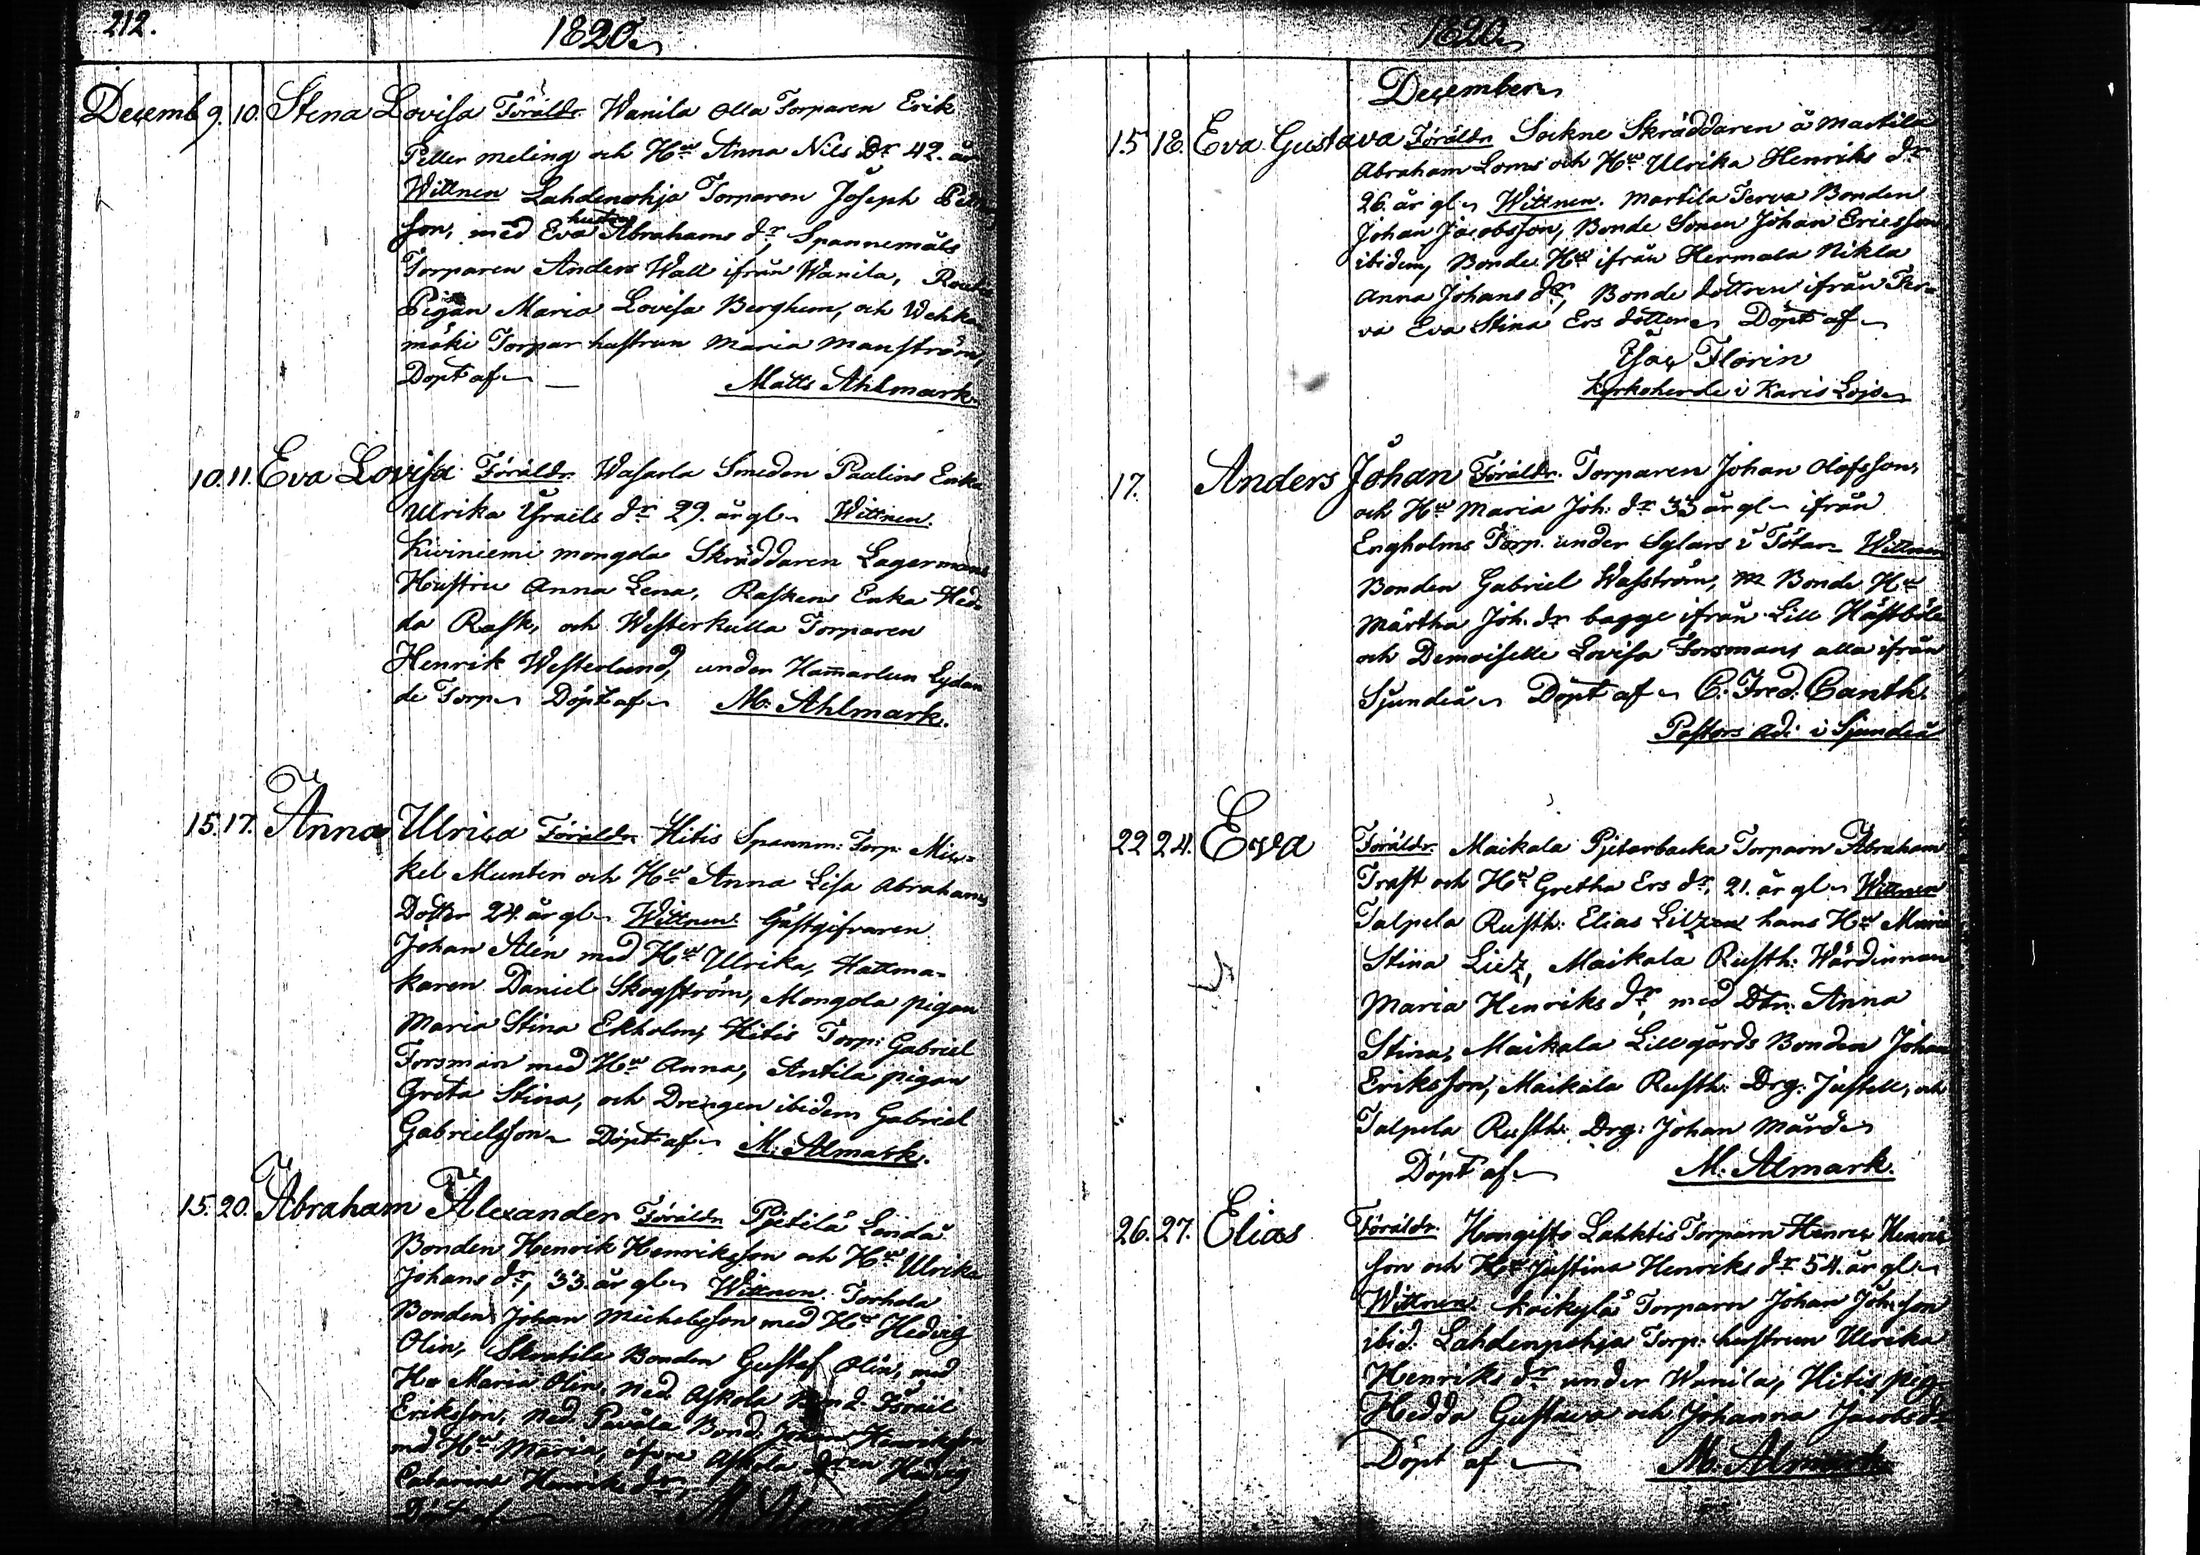 212.
1820
Decemb 9. 10. Stina Lovisa Föräldr. Wanila Olla Torparen Erik
Petter Meling och Hu Anna Nils Dr 42. år
Wittnen Lahdenpohja Torparen Joseph
son, med hustru Eva Abrahams dr, Spannemåls
Torparen Anders Wall ifrån Wanila,
Pigan Maria Lovisa Berghem, och Wehka
mäki Torpar hustrun Maria Manström,
Döpt af Matts Ahlmark.
10. 11. Eva Lovisa Föräldr. Wasarla Smeden Paulins Enka
Ulrika Israels dr 29. år gl. Wittnen.
Kiviniemi mongola Skräddaren Lagermans
Hustru Anna Lena, Raskens Enka Hed
da Rask, och Westerkulla Torparen
Henrik Westerlund, under Hamarlun Lydan
de Torp. Döpt af M. Ahlmark.
15. 17. Anna Ulrica Föräldr. Hitis Spannm: Torp: Mic=
kel Munter och Hu Anna Lisa Abrahams
Dotter 24. år gl. Wittnen. Gästgifvaren
Johan Alen med Hu Ulrika, Hattma=
karen Daniel Skogström, Mongola pigan
Maria Stina Ekholm, Hitis Torp: Gabriel
Forsman med Hu Anna, Antila pigan
Greta Stina, och Drengen ibidem Gabriel
Gabrielsson. Döpt af M. Almark.
15. 20. Abraham Alexander Föräldr. Pjetilä Londä
Bonden Henrik Henriksson och Hu Ulrika
Johans dr, 33. år gl. Wittnen. Torhola
Bonden Johan Michelsson med Hu Hedvig
Olin, Skratila Bonden Gustaf Olin, med
Hu Maria Olin, Ned. Askola Bond. Israel
Eriksson, Ned. Pavola Bond. Johan Henriksson
md Hu Maria, öfvre Askola Hedvig
Catarina Henriks dr,
Döpt af M. Almark
1820
December
15 18. Eva Gustava Föräldr. Sockne Skräddaren å Martila
Abraham Loms och Hu Ulrika Henriks dr
26. år gl. Wittnen. Martila Terva Bonden
Johan Jacobsson, Bonde Sonen Johan Ericsson
ibidem, Bonde Hu ifrån Hermala Nikla
Anna Johans dr, Bonde dottren ifrån Ter=
va Eva Stina Ers dotter. Döpt af
Isac Florin
Kyrkoherde i Karis Lojo
17. Anders Johan Föräldr. Torparen Johan Olofsson,
och Hu Maria Joh: dr 33 år gl. ifrån
Engholms Torp. under Sylars i Tötar Wittnen
Bonden Gabriel Wasström, Bonde Hu
Märtha Joh. dr bagge ifrån Lill Hästböle
och Demoiselle Lovisa Forsman, alla ifrån
Sjundeå. Döpt af C. Fred. Canth.
Pastors Adj. i Sjundeå
22 24. Eva Föräldr. Maikala Pjetarbacka Torparn Abraham
Trast och Hu Gretha Ers dr, 21. år gl. Wittnen
Talpela Rusth: Elias Lilz hans Hu Maria
Stina Lilz, Maikala Rusth: Wärdinnan
Maria Henriks dr, med Dtn. Anna
Stina, Maikala Lillgårds Bonden Johan
Eriksson, Maikala Rusth: Drg: Justell, och
Talpela Rusth: Drg: Johan Mård
Döpt af M. Almark.
26. 27. Elias Föräldr. Hongisto Lahktis Torparn Henric Henric
son och Hu Justina Henriks dr. 54. år gl.
Wittnen. Koikylä Torparn Johan Johsson
ibid. Lahdenpohja Torp: hustrun Ulrika
Henriks dr under Wanila, Hitis pig.
Hedda Gustava och Johanna Jacobs dr
Döpt af M. Almark